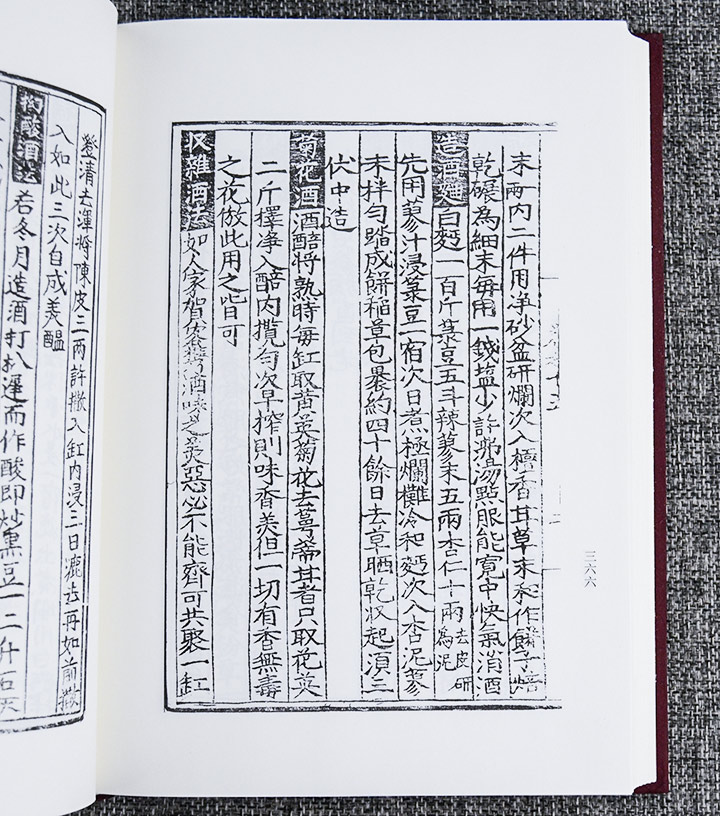 末兩内二件用净砂盆研爛次入檀香甘草末和作餅子焙
乾碾為細末每用一錢塩少許沸湯點服能寬中快氣消酒
造酒麯 白麪一百斤菉豆五斗辣蓼末五兩杏仁十兩去皮研為泥
先用蓼汁浸菉豆一宿次日煮極爛攤冷和麪次入杏泥蓼
末拌匀踏成餅稻草包暴約四十餘日去草晒乾収起須三
伏中造
菊花酒 酒醅將熟時每缸取黄英菊花去萼蔕甘者只取花英
二斤擇净入醅内攪匀次早搾則味香美但一切有香無毒
之花倣此用之皆可
収雜酒法 如人家賀客酒味美惡必不能齊可共聚一缸
三六六
澄清去渾將陳皮三兩許撒入缸内浸三日漉去再如前撒
入如此三次自成美醖
拗酸酒法 若冬月造酒打扒遲而作酸即炒黑豆一二升石灰